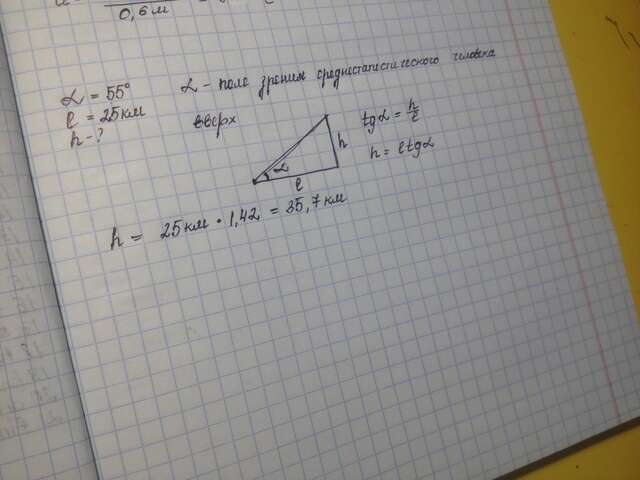 0,6 м
α = 55° α - поле зрения среднестатистического человека
l = 25 км вверх
h - ?
α
l
h
tgα = h/l
h = l tgα
h = 25 км · 1,42 = 35,7 км